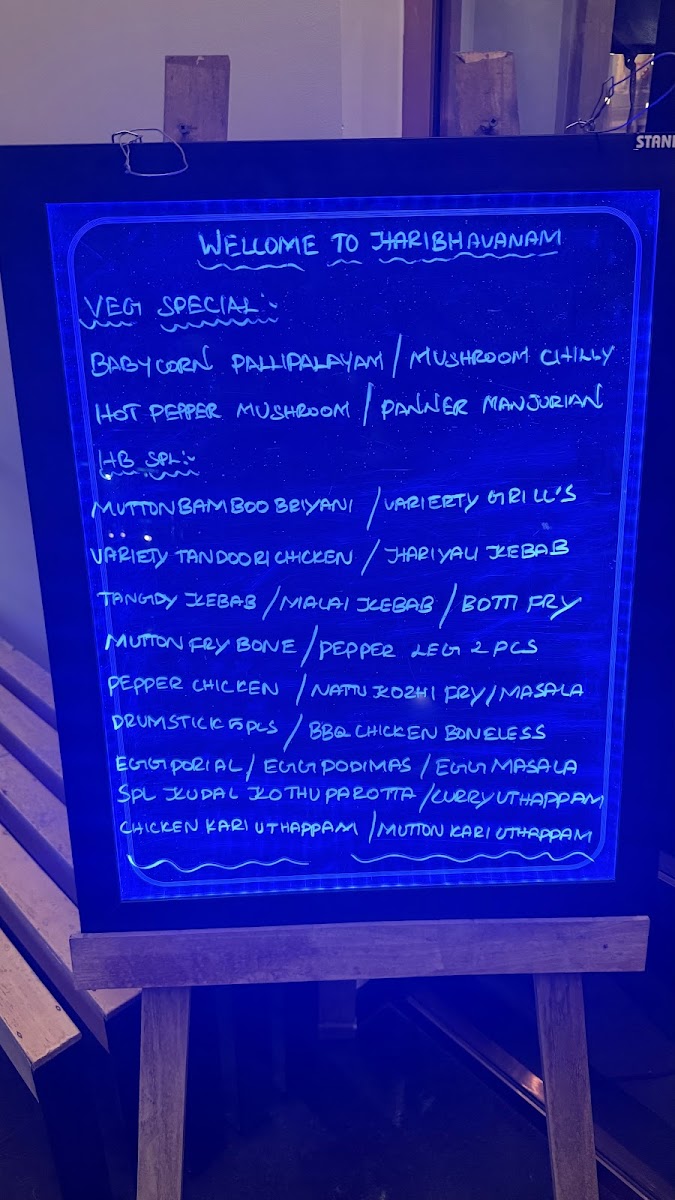 STAN
WELLOME TO HARIBHAVANAM
VEG SPECIAL:-
BABYCORN PALLIPALAYAM / MUSHROOM CHILLY
HOT PEPPER MUSHROOM / PANNER MANJURIAN
HB SPL:-
MUTTON BAMBOO BRIYANI / VARIERTY GRILL'S
VARIETY TANDOORI CHICKEN / HARIYALI KEBAB
TANGIDY KEBAB / MALAI KEBAB / BOTTI FRY
MUTTON FRY BONE / PEPPER LEG 2 PCS
PEPPER CHICKEN / NATTU KOZHI FRY / MASALA
DRUMSTICK 5 PCS / BBQ CHICKEN BONELESS
EGG PORIAL / EGG PODIMAS / EGG MASALA
SPL KUDAL KOTHU PAROTTA / CURRY UTHAPPAM
CHICKEN KARI UTHAPPAM / MUTTON KARI UTHAPPAM